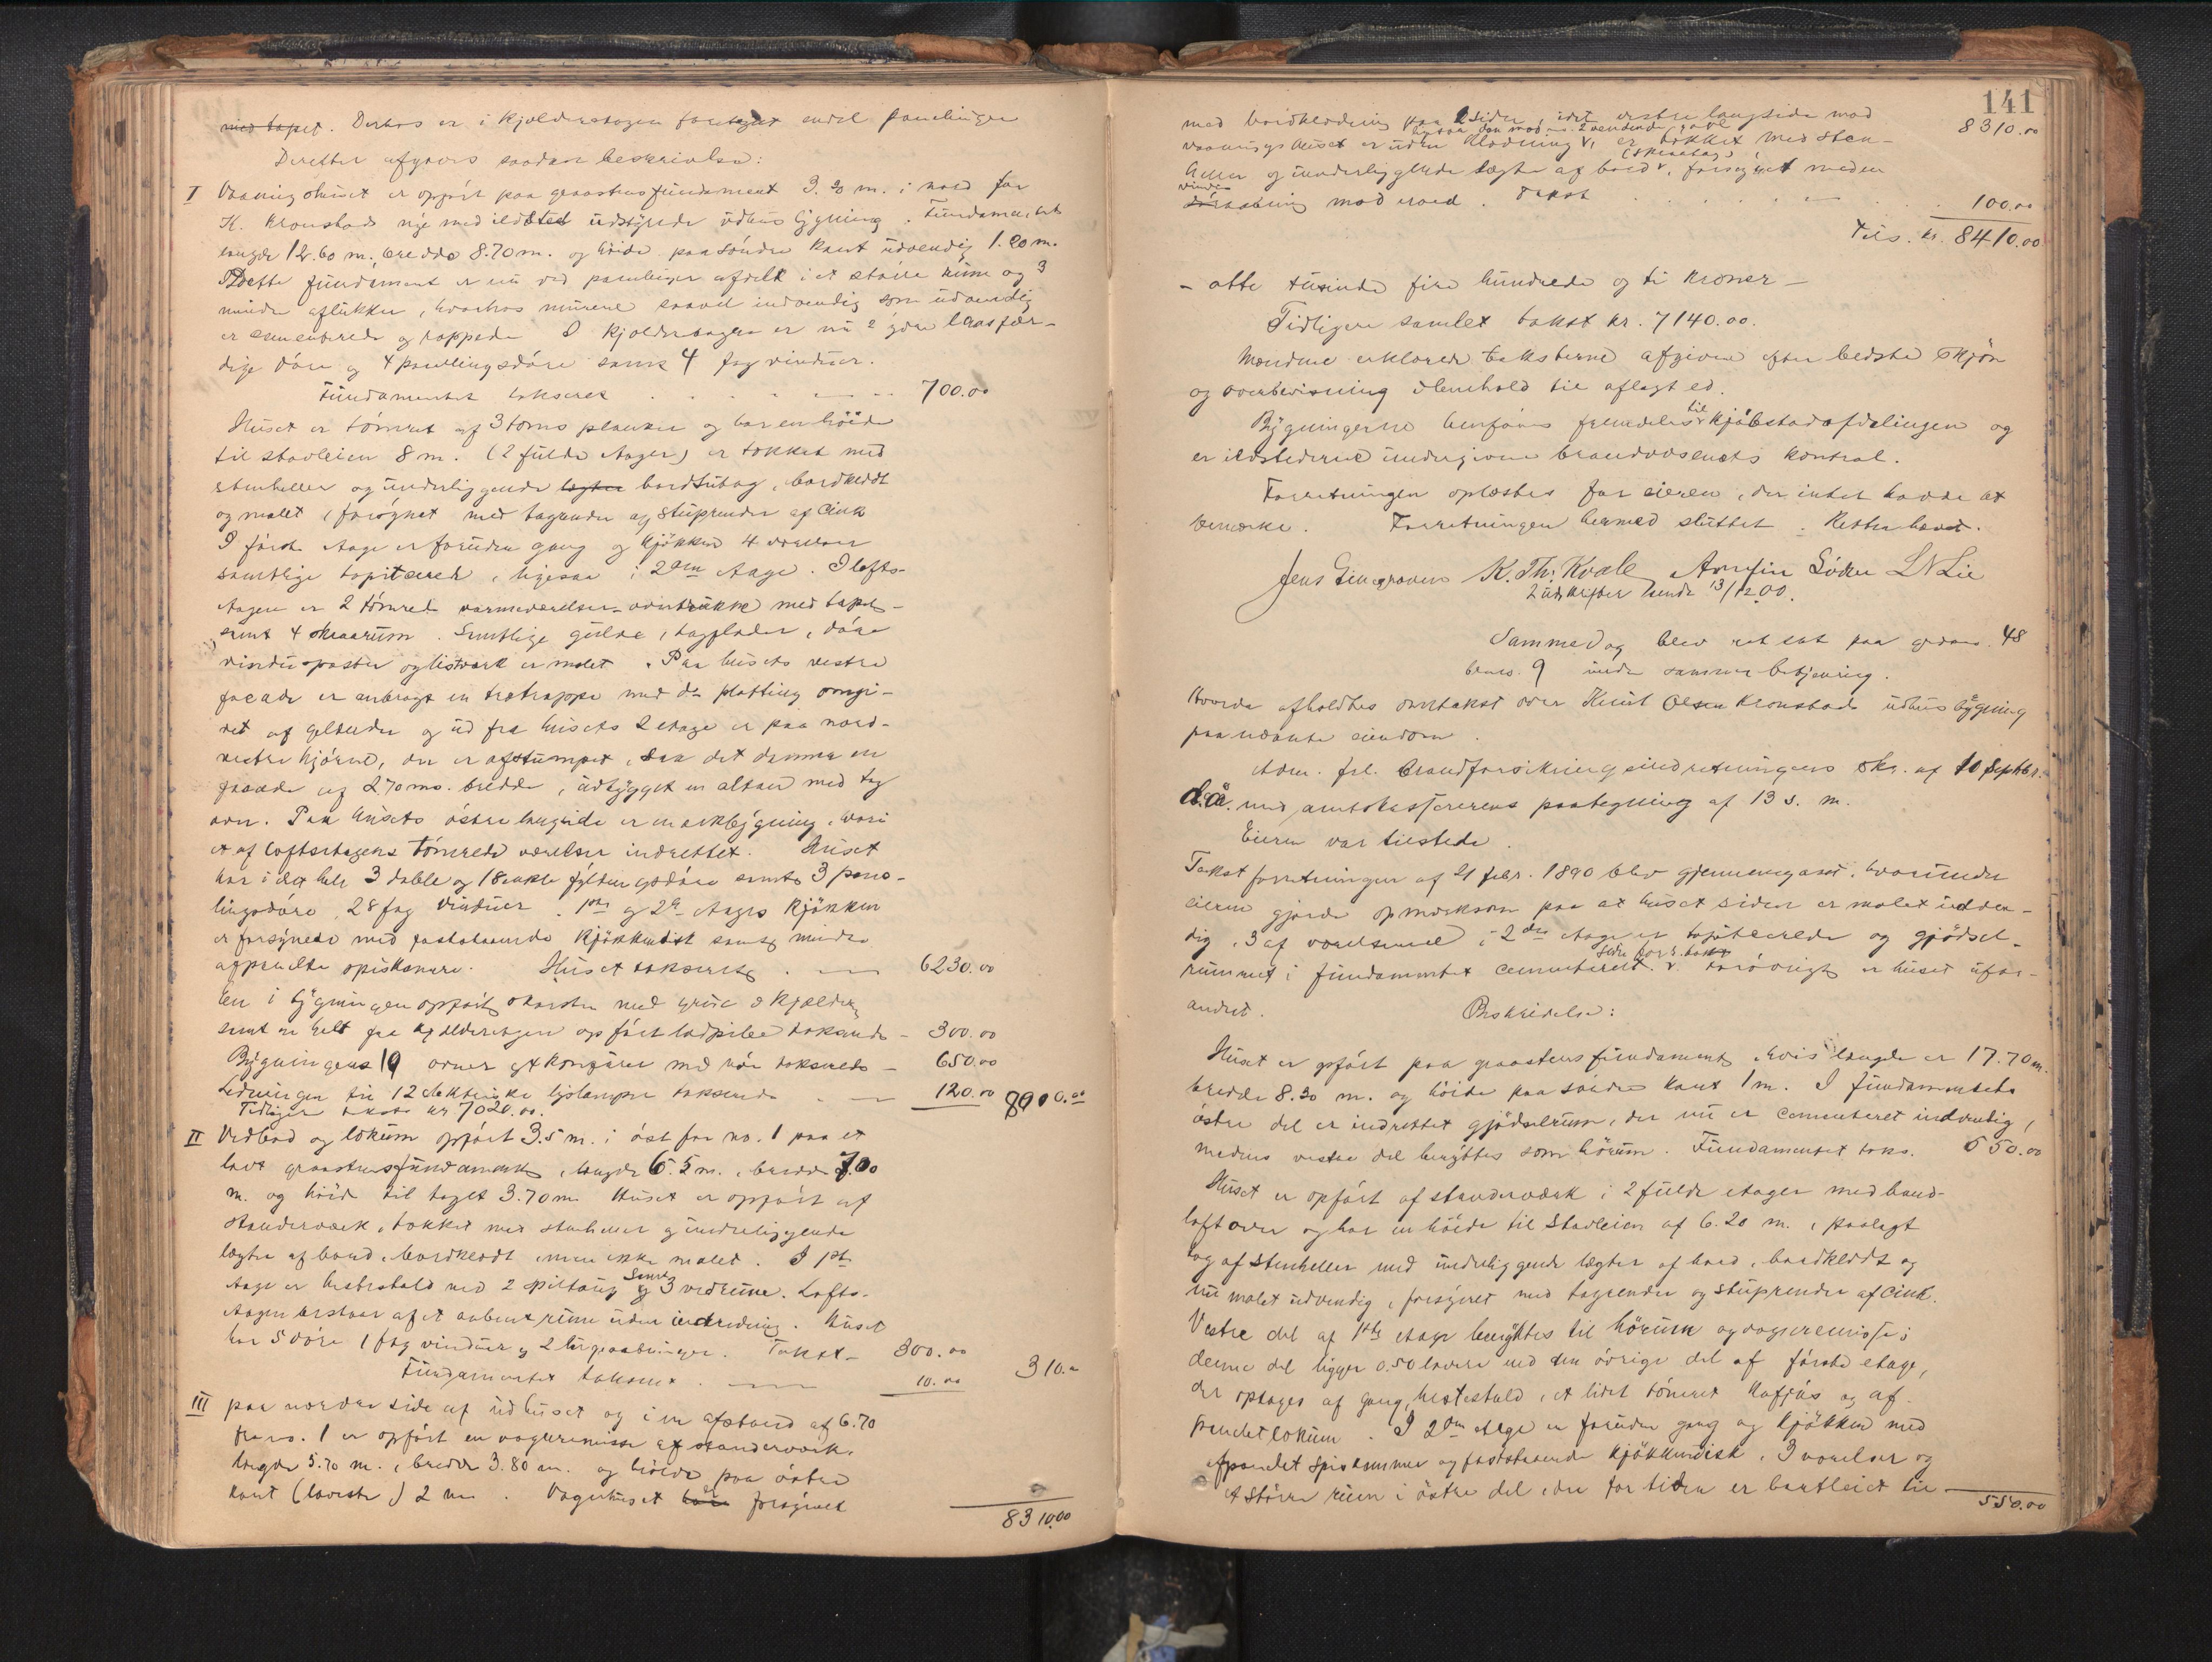 med tapet. Derhos er i kjælderetagen foretaget endel panelinger
Derefter afgaves saadan beskrivelse:
I Vaaningshuset er opført paa graastensfundament 3.20 m. i nord for
K. Kronstads nye med ildsted udstyrede udhusbygning. Fundamentets
længde 12.60 m., bredde 8.70 m. og høide paa søndre kant udvendig 1.20 m.
I dette fundament er nu ved panelinger afdelt i et større rum og 3
mindre aflukker, hvorhos murene saavel indvendig som udvendig
er cementerede og rappede. I kjælderetagen er nu 2 ydre laasfær-
dige døre og 4 panelingsdøre samt 4 fag vinduer.
Fundamentet takseret . . . . 700.00
Huset er tømret af 3 toms planker og har en høide
til stavleien 8 m. (2 fulde etager) er tækket med
stenheller og underliggende lægter bordsutag, bordklædt
og malet, forsynet med tagrender og stuprender af cink
I første etage er foruden gang og kjøkken 4 værelser
samtlige tapiterede, ligesaa i 2den etage. I lofts-
etagen er 2 tømrede varmeværelser overtrukne med tapet
samt 4 skraarum. Samtlige gulve, tagflader, døre
vinduposter og listværk er malet. Paa husets vestre
facade er anbragt en trætrappe med do platting omgi-
vet af gelænder og ud fra husets 2 etage er paa nord-
vestre hjørne, der er afstumpet, saa det danner en
facade af 2.70 ms. bredde, udbygget en altan med tag
over. Paa husets østre langside er en arkbygning, hvori
et af loftsetagens tømrede værelser indrettet. Huset
har i det hele 3 doble og 18 enkle fyldingsdøre samt 3 pane-
lingsdøre, 28 fag vinduer. 1ste og 2den etages kjøkken
er forsynede med faststaaende kjøkkenbænk samt mindre
afpanelte spiskamre. Huset takseret . — 6230.00
En i bygningen opført skorsten med grue i kjælder
samt en helt fra kjælderetagen opført lodpibe taksered — 300.00
Bygningens 19 ovner og komfurer med rør taksered — 650.00
Ledningen til 12 elektriske lyslamper taksered . — 120.00 8000.00
Tidligere takst kr 7020.00.
II Vedbod og lokum opført 3.5 m. i øst for no. 1 paa et
lavt graastensfundament, længde 6.5 m., bredde 7.00
m. og høide til taget 3.70 m. Huset er opført af
stenderværk, tækket med stenheller og underliggende
lægter af bord, bordklædt, men ikke malet. I 1ste
etage er hestestald med 2 spiltoug samt og 3 vedrum. Lofts-
etagen bestaar af et aabent rum uden indredning. Huset
har 5 døre 1 fag vinduer og 2 lugeaabninger. Takst — 300.00
Fundamentet takseret . — 10.00 310.00
III paa nordre side af udhuset og i en afstand af 6.70
fra no. 1 er opført en vognremisse af stenderværk.
længde 5.70 m., bredde 3.80 m. og høide paa østre
kant (laveste) 2 m. Vognhuset er forsynet
8310.00
141
med bordklædning paa 2 sider, idet vestre langside mod 8310.00
og saa den mod no. 2 vendende gavl
vaaningshuset er uden klædning, er tækket med sten-
(skraatag)
heller og underliggende lægter af bord, forsynet med en
vindu
aabning mod nord. Takst . . . . — . . 100.00
Tils. kr. 8410.00
- otte tusinde fire hundrede og ti kroner —
Tidligere samlet takst kr. 7140.00.
Mændene erklærede taksterne afgivne efter bedste skjøn
og overbevisning i henhold til aflagt ed.
Bygningerne henføres fremdeles til kjøbstadafdelingen og
er ildstederne undergivne brandvæsenets kontrol.
Forretningen oplæstes for eieren, der intet havde at
bemærke. Forretningen hermed sluttet. Retten hævet.
Jens K. Th. Kvale Arnfin L N Lie
2 udskrifter sendt 13/12 00.
Samme dag blev ret sat paa gaards no. 48
brno. 9 under samme betjening.
Hvorda afholdtes omtakst over Knut Olsen Kronstads udhusbygning
paa nævnte eiendom.
Adm. frl. brandforsikringsindretningens skr. af 10 Septbr.
d.a. med amtskassererens paategning af 13 s. m.
Eieren var tilstede.
Takstforretningen af 21 febr. 1890 blev gjennemgaaet, hvorunder
eieren gjorde opmærksom paa at huset siden er malet udven-
dig, 3 af værelserne i 2den etage er tapiterede og gjødsel-
rummet i fundamentet cementeret. Forøvrigt er huset ufor-
andret. Beskrivelse:
Huset er opført paa graastens fundament, hvis længde er 17.70 m.
bredde 8.30 m. og høide paa søndre kant 1 m. I fundamentets
østre del er indrettet gjødselrum, der nu er cementeret indvendig,
medens vestre del benyttes som hørum. Fundamentet taks. 550.00
Huset er opført af stenderværk i 2 fulde etager med baand-
loft over og har en høide til stavleien af 6.20 m., paalagt
tag af stenheller med underliggende lægter af bord, bordklædt og
nu malet udvendig, forsynet med tagrender og stuprender af cink.
Vestre del af 1ste etage benyttes til hørum og vognremisse;
denne del ligger 0.50 lavere end den øvrige del af første etage,
der optages af gang, hestestald, et lidet tømret kufjøs og af-
panelet lokum. I 2den etage er foruden gang og kjøkken med
afpanelet spiskammer og faststaaende kjøkkenbænk, 3 værelser og
et større rum i østre del, der for tiden er bortleiet til —
550.00